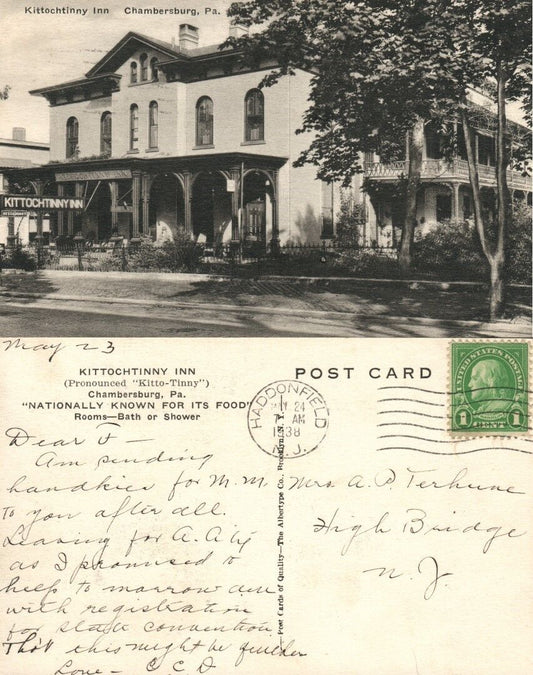 Kittochtinny Inn   Chambersburg, Pa.
KITTOCHTINNY INN
RESTAURANT
May 23
KITTOCHTINNY INN
(Pronounced "Kitto-Tinny")
Chambersburg, Pa.
"NATIONALLY KNOWN FOR ITS FOOD"
Rooms—Bath or Shower
Dear F—
Am sending
handkies for M.M.
to you after all.
Leaving for A. City
as I promised to
help to morrow am
with registration
for state convention
Thot this might be quicker
Love — C.C.D
Post Cards of Quality—The Albertype Co., Brooklyn, N. Y.
POST CARD
HADDONFIELD
MAY 24
7 AM
1938
N.J.
UNITED STATES POSTAGE
1 CENT 1
Mrs A. P. Terhune
High Bridge
N. J.